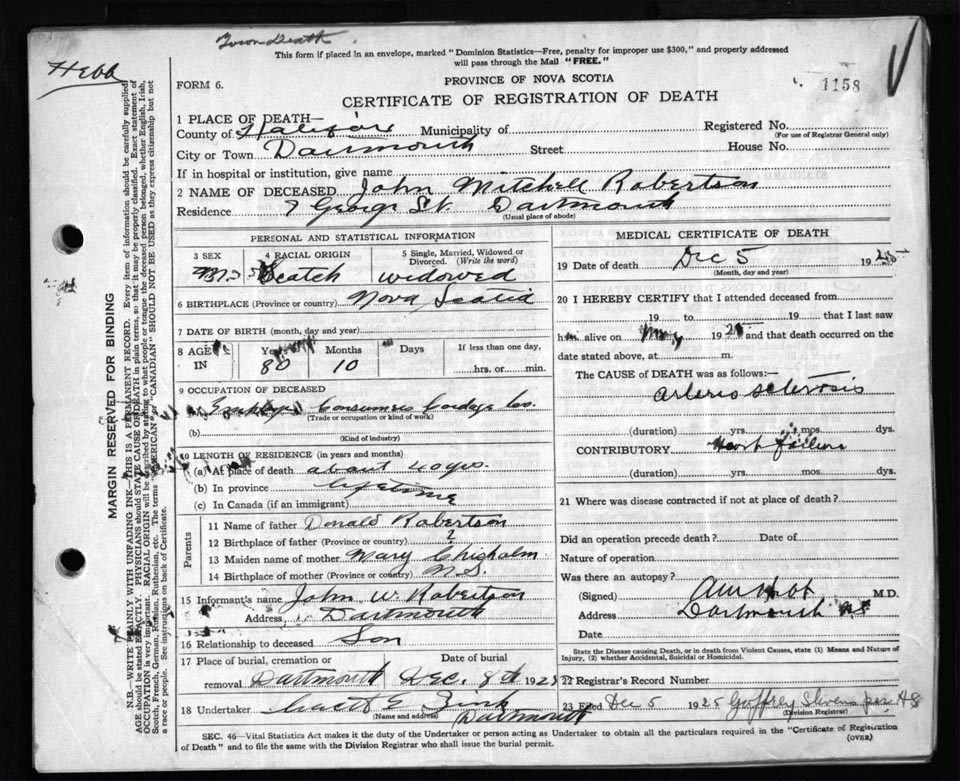 Town Death
This form if placed in an envelope, marked "Dominion Statistics—Free, penalty for improper use $300," and properly addressed
will pass through the Mail "FREE."
Hebb
FORM 6.
PROVINCE OF NOVA SCOTIA
1158
CERTIFICATE OF REGISTRATION OF DEATH
1 PLACE OF DEATH—
County of Halifax Municipality of
Registered No.
(For use of Registrar General only)
City or Town Dartmouth Street House No.
If in hospital or institution, give name
2 NAME OF DECEASED John Mitchell Robertson
Residence 7 George St. Dartmouth
(Usual place of abode)
PERSONAL AND STATISTICAL INFORMATION
3 SEX 4 RACIAL ORIGIN 5 Single, Married, Widowed or
Divorced. (Write the word)
M. Scotch widowed
6 BIRTHPLACE (Province or country) Nova Scotia
7 DATE OF BIRTH (month, day and year)
8 AGE IN Years Months Days If less than one day,
80 10 hrs. or min.
9 OCCUPATION OF DECEASED
Employee Consumers Cordage Co.
(Trade or occupation or kind of work)
(b)
(Kind of industry)
10 LENGTH OF RESIDENCE (in years and months)
(a) At place of death about 40 yrs.
(b) In province lifetime
(c) In Canada (if an immigrant)
Parents
11 Name of father Donald Robertson
12 Birthplace of father (Province or country) ?
13 Maiden name of mother Mary Chisholm
14 Birthplace of mother (Province or country) N.S.
15 Informant's name John W. Robertson
Address Dartmouth
16 Relationship to deceased Son
17 Place of burial, cremation or Date of burial
removal Dartmouth Dec. 8th 1925
18 Undertaker Zink
(Name and address) Dartmouth
MEDICAL CERTIFICATE OF DEATH
19 Date of death Dec 5 1925
(Month, day and year)
20 I HEREBY CERTIFY that I attended deceased from
19 to 19 that I last saw
him alive on May 1925 and that death occurred on the
date stated above, at m.
The CAUSE of DEATH was as follows:—
arterio sclerosis
(duration) yrs. mos. dys.
CONTRIBUTORY Heart failure
(duration) yrs. mos. dys.
21 Where was disease contracted if not at place of death?
Did an operation precede death? Date of
Nature of operation
Was there an autopsy?
(Signed) M.D.
Address Dartmouth N.S.
Date
State the Disease causing Death, or in death from Violent Causes, state (1) Means and Nature of
Injury, (2) whether Accidental, Suicidal or Homicidal.
22 Registrar's Record Number
23 Filed Dec 5 1925 Geoffrey Stevens per AS
(Division Registrar)
SEC. 46—Vital Statistics Act makes it the duty of the Undertaker or person acting as Undertaker to obtain all the particulars required in the "Certificate of Registration
of Death" and to file the same with the Division Registrar who shall issue the burial permit.
(OVER)
MARGIN RESERVED FOR BINDING
N.B.—WRITE PLAINLY WITH UNFADING INK—THIS IS A PERMANENT RECORD. Every item of information should be carefully supplied
AGE should be stated EXACTLY. PHYSICIANS should STATE CAUSE OF DEATH in plain terms, so that it may be properly classified. Exact statement of
OCCUPATION is very important. RACIAL ORIGIN will be described by stating to what people or tongue the deceased person belonged, whether English, Irish,
Scotch, French, German, Russian, Ruthenian, etc. The terms "AMERICAN" or "CANADIAN" SHOULD NOT BE USED as they express citizenship but not
a race or people. See instructions on back of Certificate.